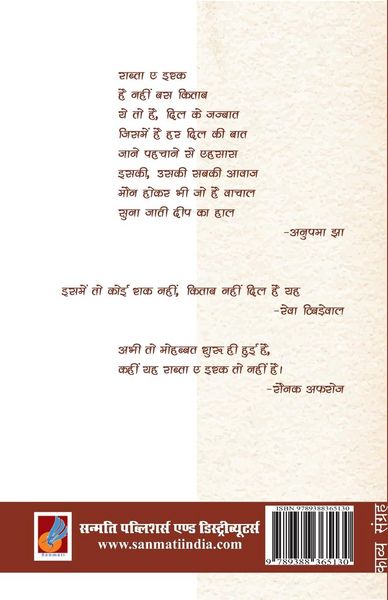 राब्ता ए इश्क
है नहीं बस किताब
ये तो है, दिल के जज्बात
जिसमें है हर दिल की बात
जाने पहचाने से एहसास
इसकी, उसकी सबकी आवाज
मौन होकर भी जो है वाचाल
सुना जाती दीप का हाल
-अनुपमा झा
इसमें तो कोई शक नहीं, किताब नहीं दिल है यह
-रेवा टिबड़ेवाल
अभी तो मोहब्बत शुरू ही हुई है,
कहीं यह राब्ता ए इश्क तो नहीं है।
-रौनक अफरोज
Sanmati
सन्मति पब्लिशर्स एण्ड डिस्ट्रीब्यूटर्स
www.sanmatiindia.com
ISBN 9789388365130
9 789388 365130
काव्य संग्रह